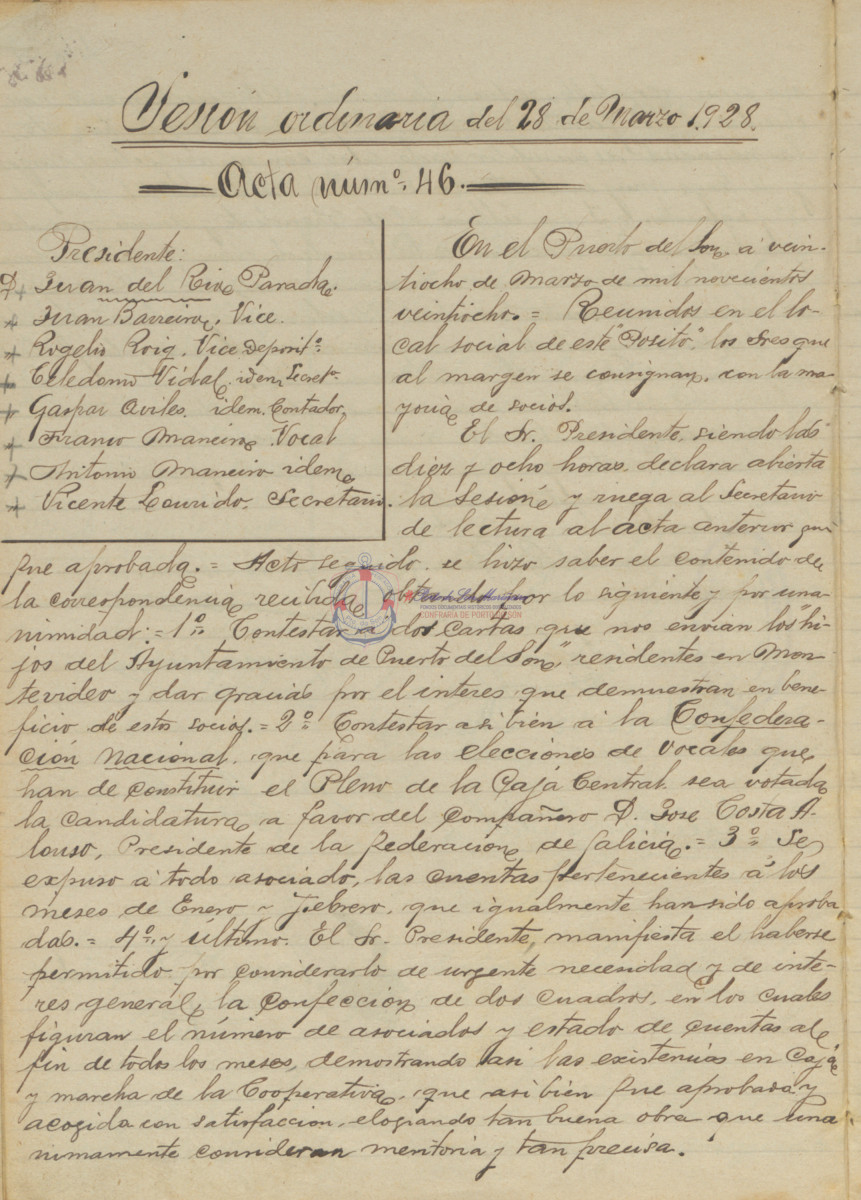 Sesión ordinaria del 28 de Marzo 1.928.
Acta núm.º 46.
Presidente:
D. Juan del Rio Parada.
Juan Barreiro, Vice.
Rogelio Roig, Vice Deposit.º
Celedonio Vidal, idem Secret.º
Gaspar Aviles. idem. Contador,
Franco Maneiro Vocal
Antonio Maneiro idem,
Vicente Lourido. Secretario.
En el Puerto del Son á vein-
tiocho de Marzo de mil novecientos
veintiocho. = Reunidos en el lo-
cal social de este "Posito", los Sres que
al margen se consignan, con la ma-
yoria de socios.
El Sr. Presidente, siendo las
diez y ocho horas, declara abierta
la Sesión y ruega al Secretario
de lectura al acta anterior que
fue aprobada. = Acto seguido se hizo saber el contenido de
la correspondencia recibida por lo siguiente y por una-
nimidad: = 1º Contestar a dos cartas que nos envian los "hi-
jos del Ayuntamiento de Puerto del Son", residentes en Mon-
tevideo y dar gracias por el interes que demuestran en bene-
ficio de estos socios. = 2º Contestar asi bien á la Confedera-
ción Nacional, que para las elecciones de Vocales que,
han de constituir el Pleno de la Caja Central sea votada
la candidatura a favor del compañero D. Jose Costa A-
lonso, Presidente de la federacion de Galicia. = 3º Se
expuso á todo asociado, las cuentas pertenecientes á los
meses de Enero y Febrero, que igualmente han sido aproba-
das. = 4º y ultimo. El Sr. Presidente, manifiesta el haberse
permitido por considerarlo de urgente necesidad y de inte-
res general, la confección de dos cuadros, en los cuales
figuran el número de asociados y estado de cuentas al
fin de todos los meses, demostrando asi las existencias en Caja
y marcha de la Cooperativa, que asi bien fue aprobada y
acogida con satisfaccion, elogiando tan buena obra que una
nimamente consideran meritoria y tan precisa.
CONFRARÍA DE PORTO DO SON